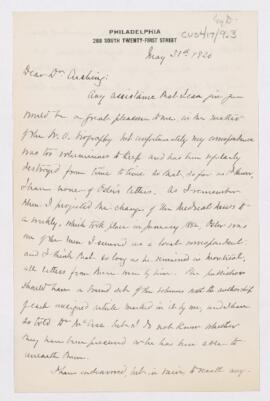 CUS417/93
PHILADELPHIA
288 SOUTH TWENTY-FIRST STREET
May 21st 1920
Dear Dr. Cushing:
Any assistance that I can give you
would be a great pleasure to me in the matter
of the W. O. biography but unfortunately my correspondence
was too voluminous to keep and has been regularly
destroyed from time to time so that, so far as I know,
I have none of Osler's letters. As I remember
when I projected the change of the Medical News to
a weekly, which took place in January 1882 Osler was
one of the men I secured as a local correspondent
and I think that so long as he remained in Montreal,
all letters from there were by him. The publishers
should have a bound set of the volumes with the authorship
of each unsigned article marked in it by me, and I have
so told Dr. McCrae but I do not know whether
they have been preserved or he has been able to
unearth them.
I have endeavored, but in vain, to recall any